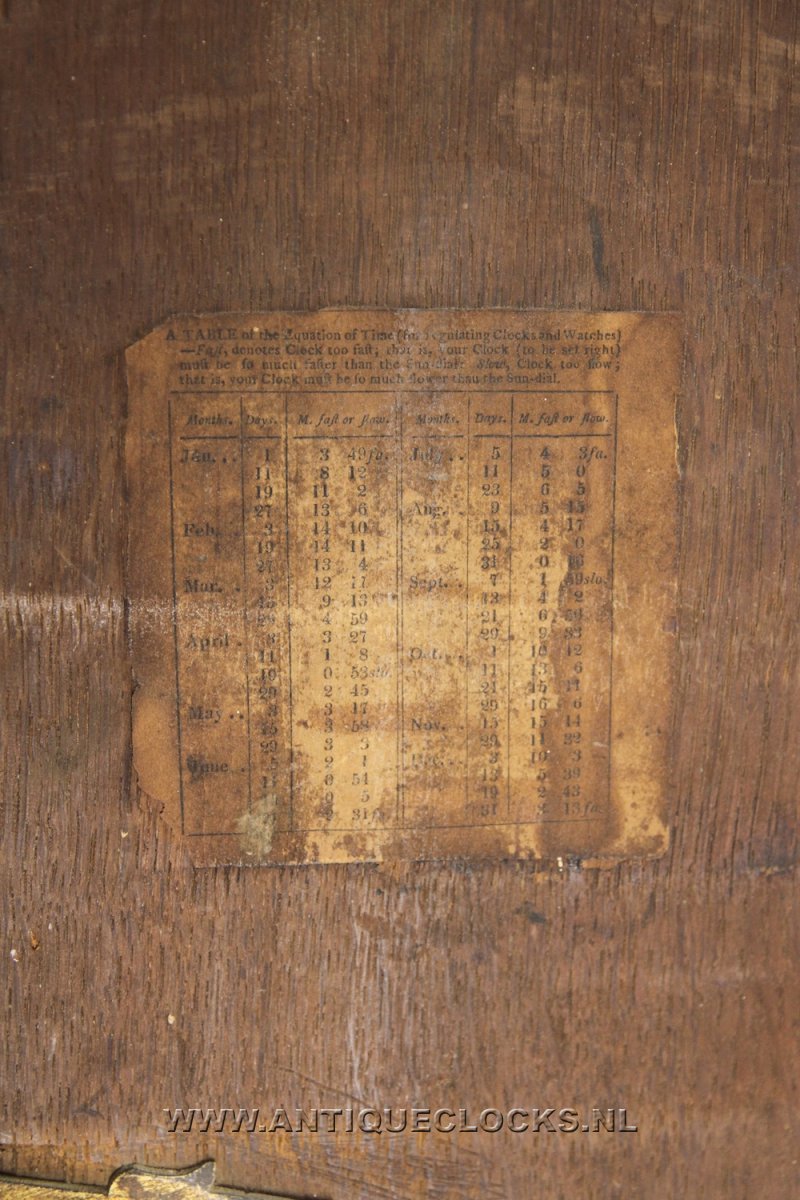 A TABLE of the Equation of Time (for regulating Clocks and Watches)
—Faſt, denotes Clock too faſt; that is, your Clock (to be ſet right)
muſt be ſo much faſter than the Sun-dial: Slow, Clock too ſlow;
that is, your Clock muſt be ſo much ſlower than the Sun-dial.
Months. Days. M. faſt or ſlow. Months. Days. M. faſt or ſlow.
Jan. . . 1 3 49fa. July. . . 5 4 3fa.
11 8 12 11 5 0
19 11 2 23 6 5
27 13 6 Aug. . 9 5 15
Feb. . 3 14 10 15 4 17
19 14 11 25 2 0
27 13 4 31 0
Mar. . 3 12 17 Sept. . 7 1 59slo.
15 9 13 13 4 2
4 59 21 6 59
April . 3 27 29 9 33
11 1 8 Oct. . . 1 10 12
19 0 53slo. 11 13 6
29 2 45 21 15 11
May . . 3 3 17 29 16 6
3 58 Nov. . 15 15 14
29 3 5 29 11 32
June . . 5 2 1 3 10 3
0 51 13 5 39
0 5 19 2 43
31fa. 31 3 13fa.
WWW.ANTIQUECLOCKS.NL